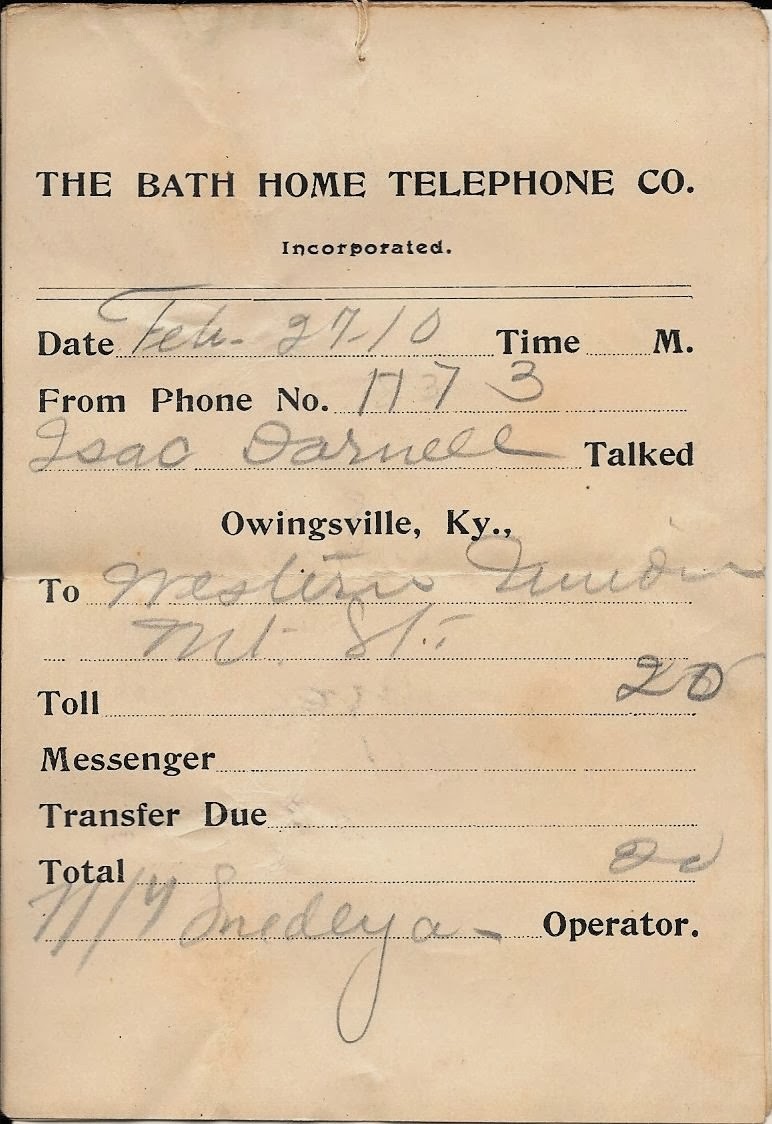 THE BATH HOME TELEPHONE CO.
Incorporated.
Date Feb. 27-10 Time M.
From Phone No. 117 3
Isac Darnell Talked
Owingsville, Ky.,
To Western Union
Mt. St.
Toll 20
Messenger
Transfer Due
Total 20
Operator.